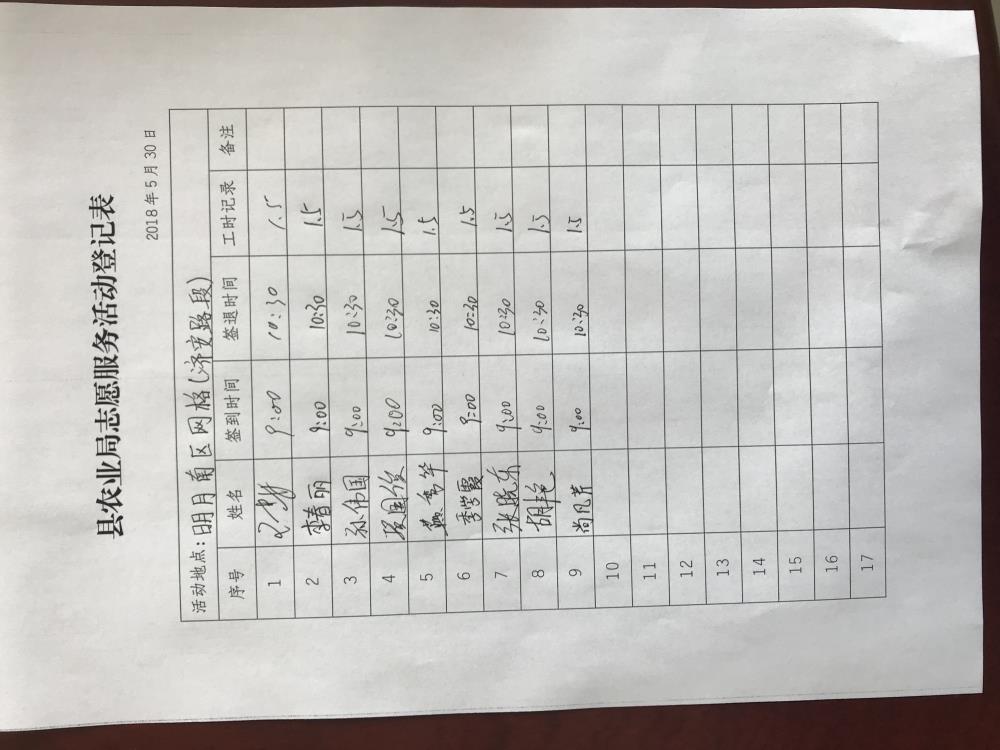 县农业局志愿服务活动登记表
2018年5月30日
活动地点：明月南区网格(济安路段)
序号 姓名 签到时间 签退时间 工时记录 备注
1 9:00 10:30 1.5
2 李春丽 9:00 10:30 1.5
3 孙伟国 9:00 10:30 1.5
4 9:00 10:30 1.5
5 9:00 10:30 1.5
6 李学霞 9:00 10:30 1.5
7 张晓东 9:00 10:30 1.5
8 胡艳 9:00 10:30 1.5
9 尚凡芹 9:00 10:30 1.5
10
11
12
13
14
15
16
17